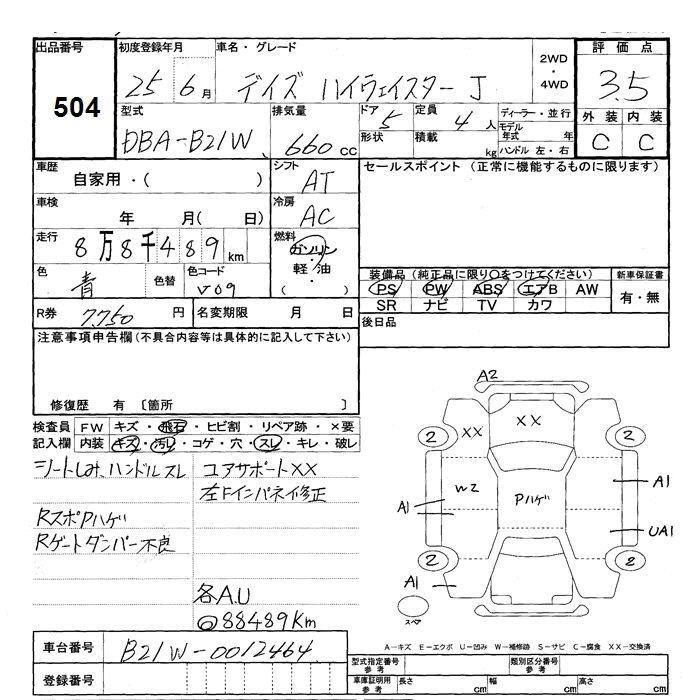 出品番号
504
初度登録年月
25 6月
車名・グレード
デイズ ハイウェイスター J
2WD
・
4WD
評価点
3.5
外装 内装
C C
型式
DBA-B21W
排気量
660 cc
ドア 5
形状
定員 4人
積載 kg
ディーラー・並行
モデル年式 年
ハンドル 左・右
車歴
自家用・( )
シフト
AT
セールスポイント (正常に機能するものに限ります)
車検
年 月( 日)
冷房
AC
走行
8万8千489km
燃料
ガソリン
・
軽・油
( )
色
青
色替
色コード
V09
装備品 (純正品に限り○をつけてください)
PS PW ABS エアB AW
SR ナビ TV カワ
新車保証書
有・無
R券
7,750 円
名変期限 月 日
後日品
注意事項申告欄 (不具合内容等は具体的に記入して下さい)
修復歴 有 〔箇所 〕
検査員記入欄
FW キズ・飛石・ヒビ割・リペア跡・×要
内装 キズ・汚レ・コゲ・穴・スレ・キレ・破レ
シートしみ、ハンドルスレ
RスポPハゲ
Rゲートダンパー不良
コアサポートXX
左Fインパネイ修正
各A.U
88489Km
A2
XX
XX
2
2
W2
Pハゲ
A1
A1
UA1
2
2
A1
スペア
A-キズ E-エクボ U-凹み W-補修跡 S-サビ C-腐食 XX-交換済
車台番号
B21W-0012464
登録番号
型式指定番号
参考
類別区分番号
参考
車庫証明用
参考
長さ cm
幅 cm
高さ cm